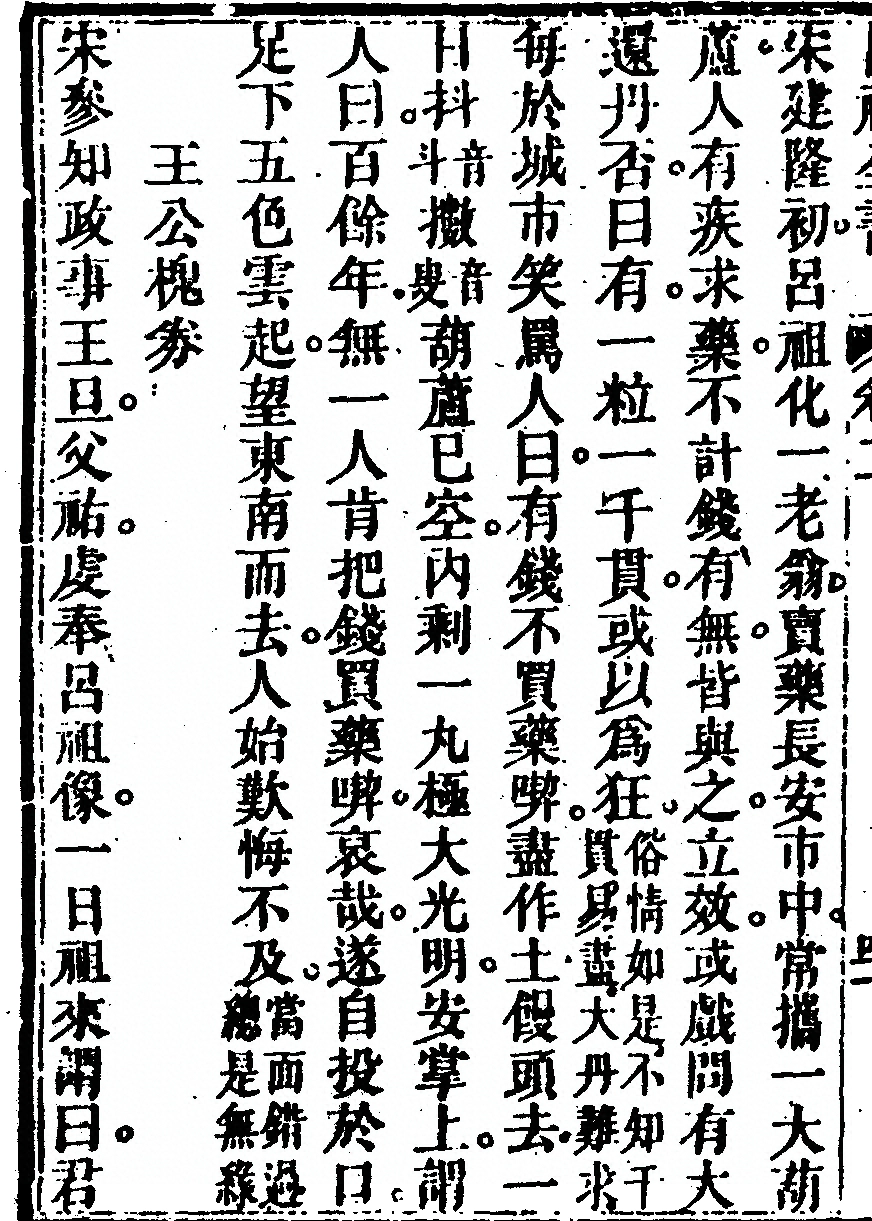 宋建隆初。呂祖化一老翁。賣藥長安市中。常攜一大葫
蘆。人有疾求藥。不計錢有無。皆與之。立效。或戲問有大
還丹否。曰有。一粒一千貫。或以爲狂。俗情如是不知千貫易盡大丹難求
每於城市笑罵人曰。有錢不買藥喫。盡作土饅頭去。一
日抖音斗擻音叟葫蘆已空。內剩一丸極大光明。安掌上。謂
人曰。百餘年。無一人肯把錢買藥喫。哀哉。遂自投於口。
足下五色雲起。望東南而去。人始歎悔不及。當面錯過總是無緣
王公槐券
宋參知政事王旦。父祐。虔奉呂祖像。一日祖來謂曰。君